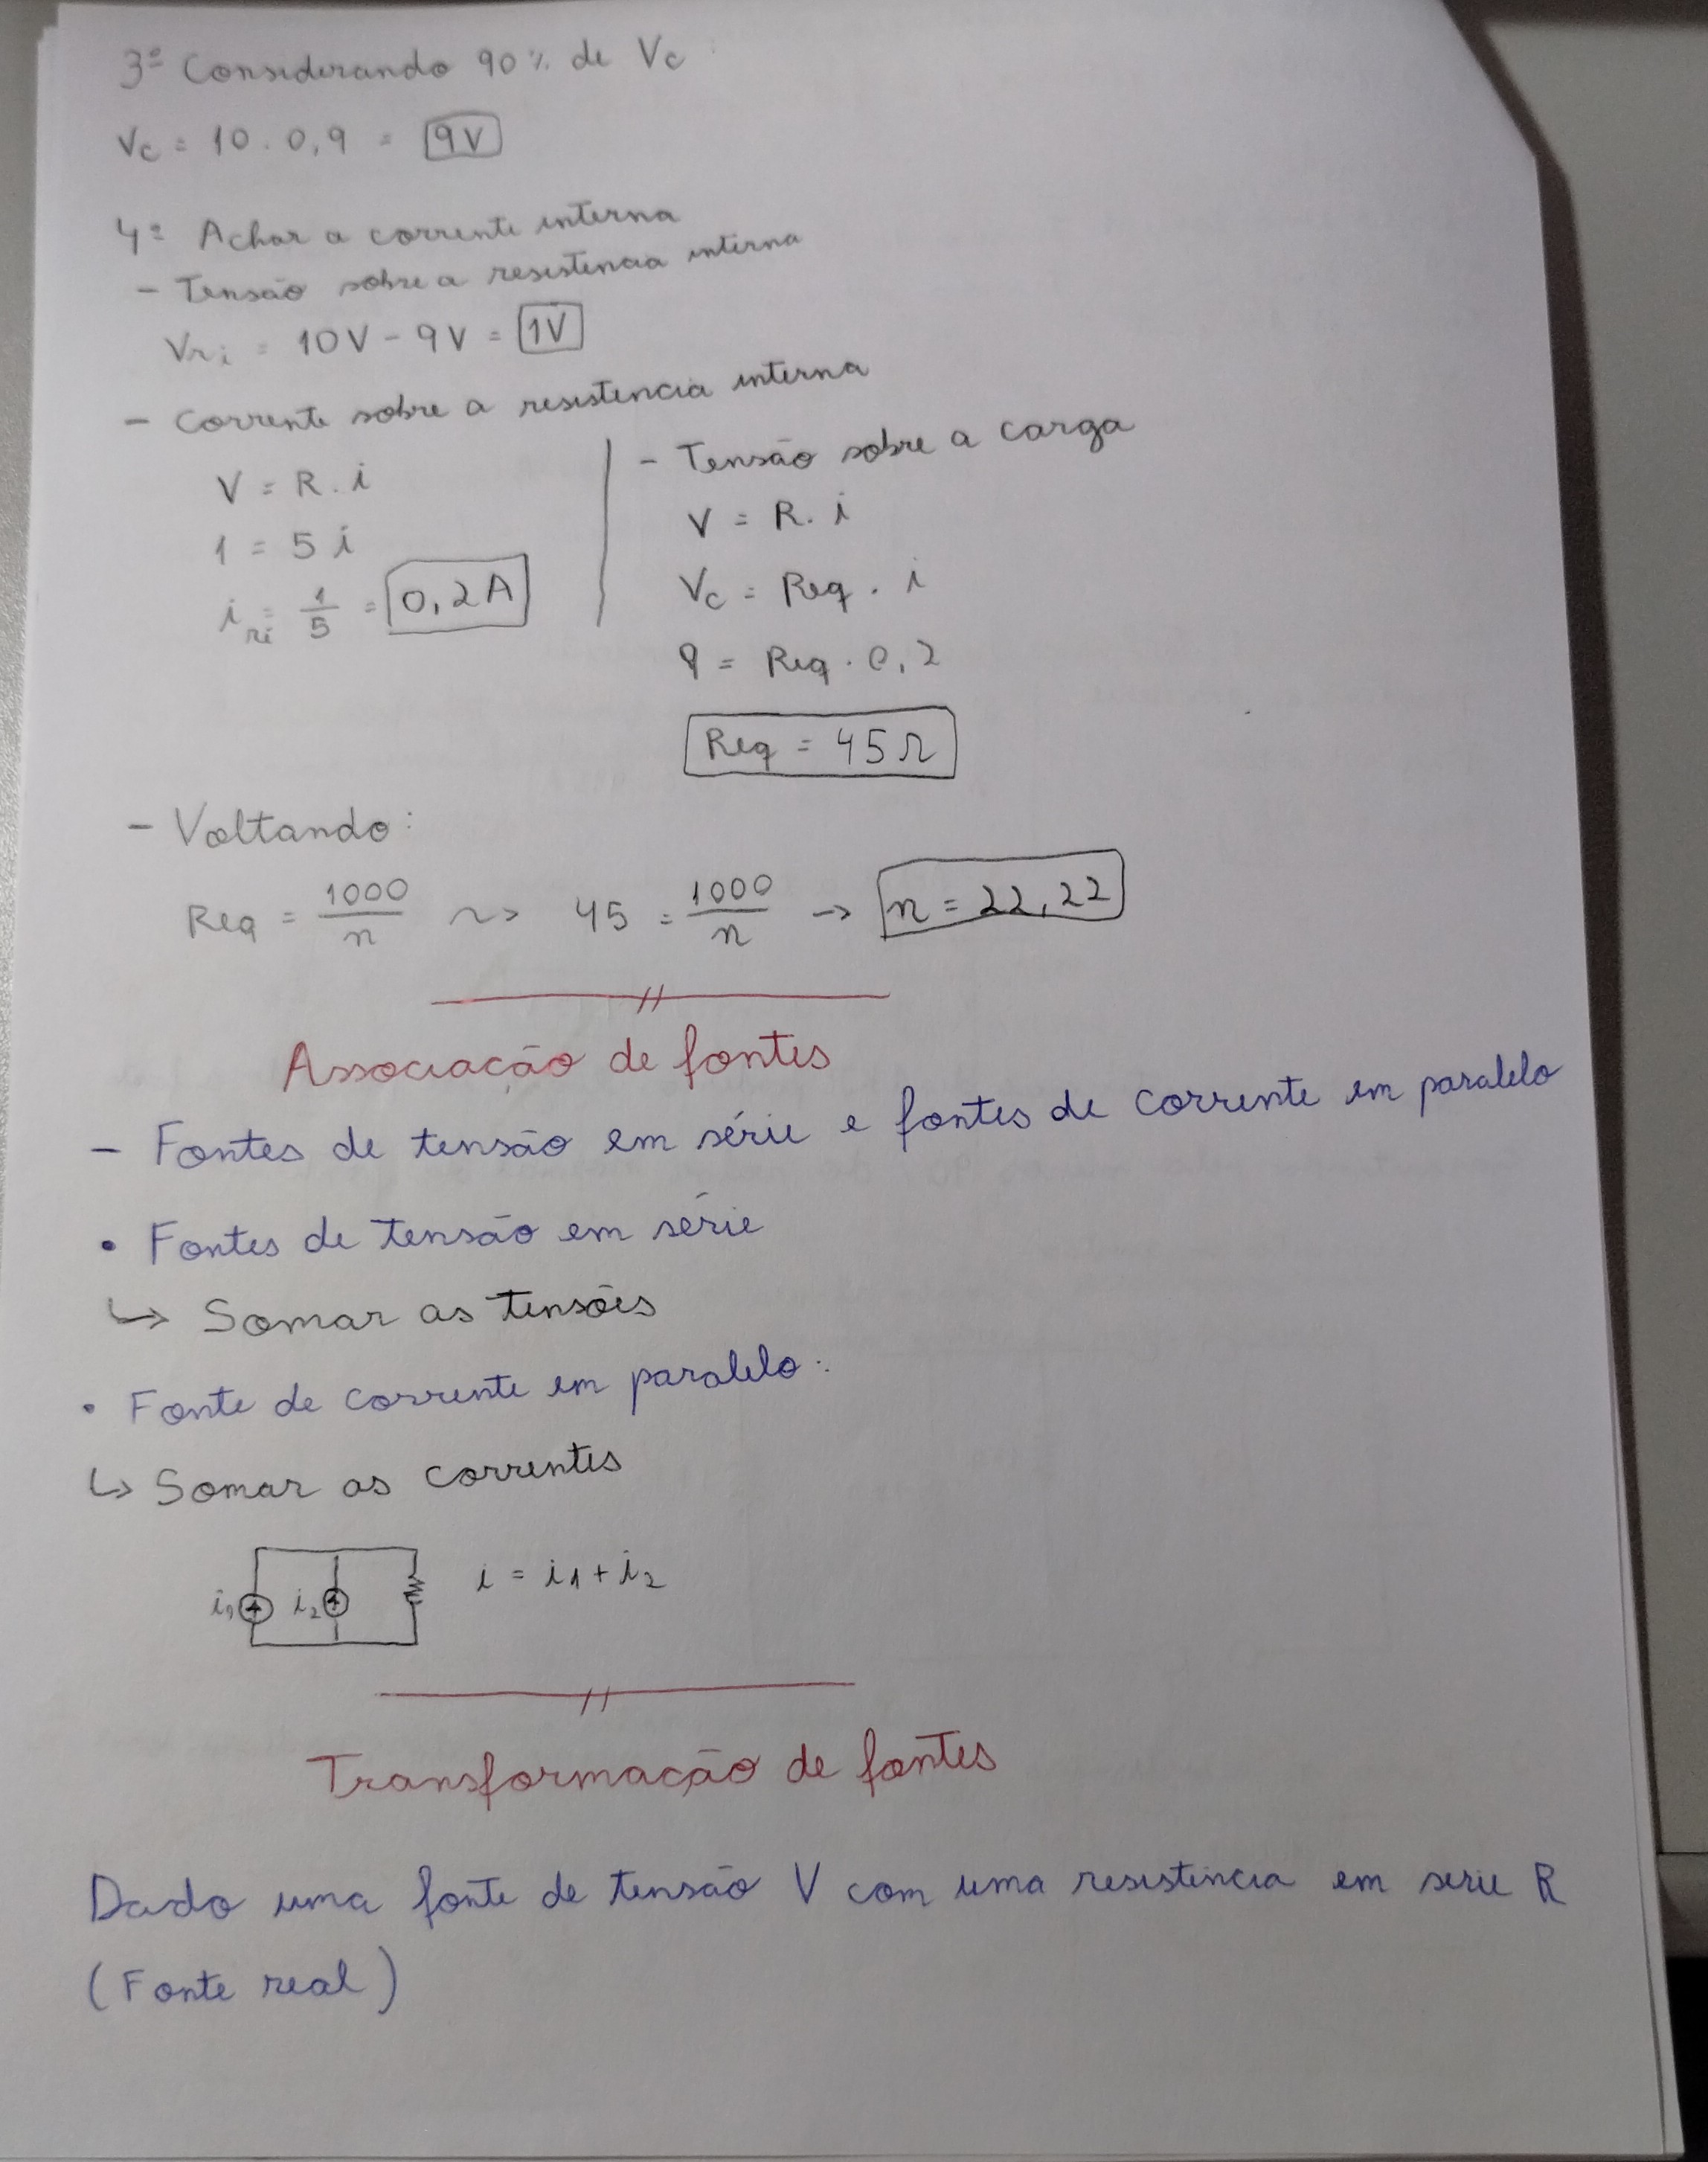 3º Considerando 90% de Vc
Vc = 10 . 0,9 = 9V
4º Achar a corrente interna
- Tensão sobre a resistencia interna
Vri = 10V - 9V = 1V
- Corrente sobre a resistencia interna
V = R . i
1 = 5 i
i ri = 1/5 = 0,2A
- Tensão sobre a carga
V = R . i
Vc = Req . i
9 = Req . 0,2
Req = 45Ω
- Voltando:
Req = 1000/n ~> 45 = 1000/n -> n = 22,22
Associação de fontes
- Fontes de tensão em série e fontes de corrente em paralelo
• Fontes de tensão em série
↳ Somar as tensões
• Fonte de corrente em paralelo:
↳ Somar as correntes
i1 i2 i = i1 + i2
Transformação de fontes
Dado uma fonte de tensão V com uma resistência em serie R
(Fonte real)